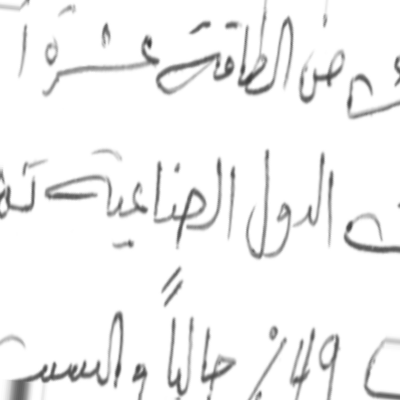 من الطاقة عشرة
الدول الصناعية
49% حالياً والسبب